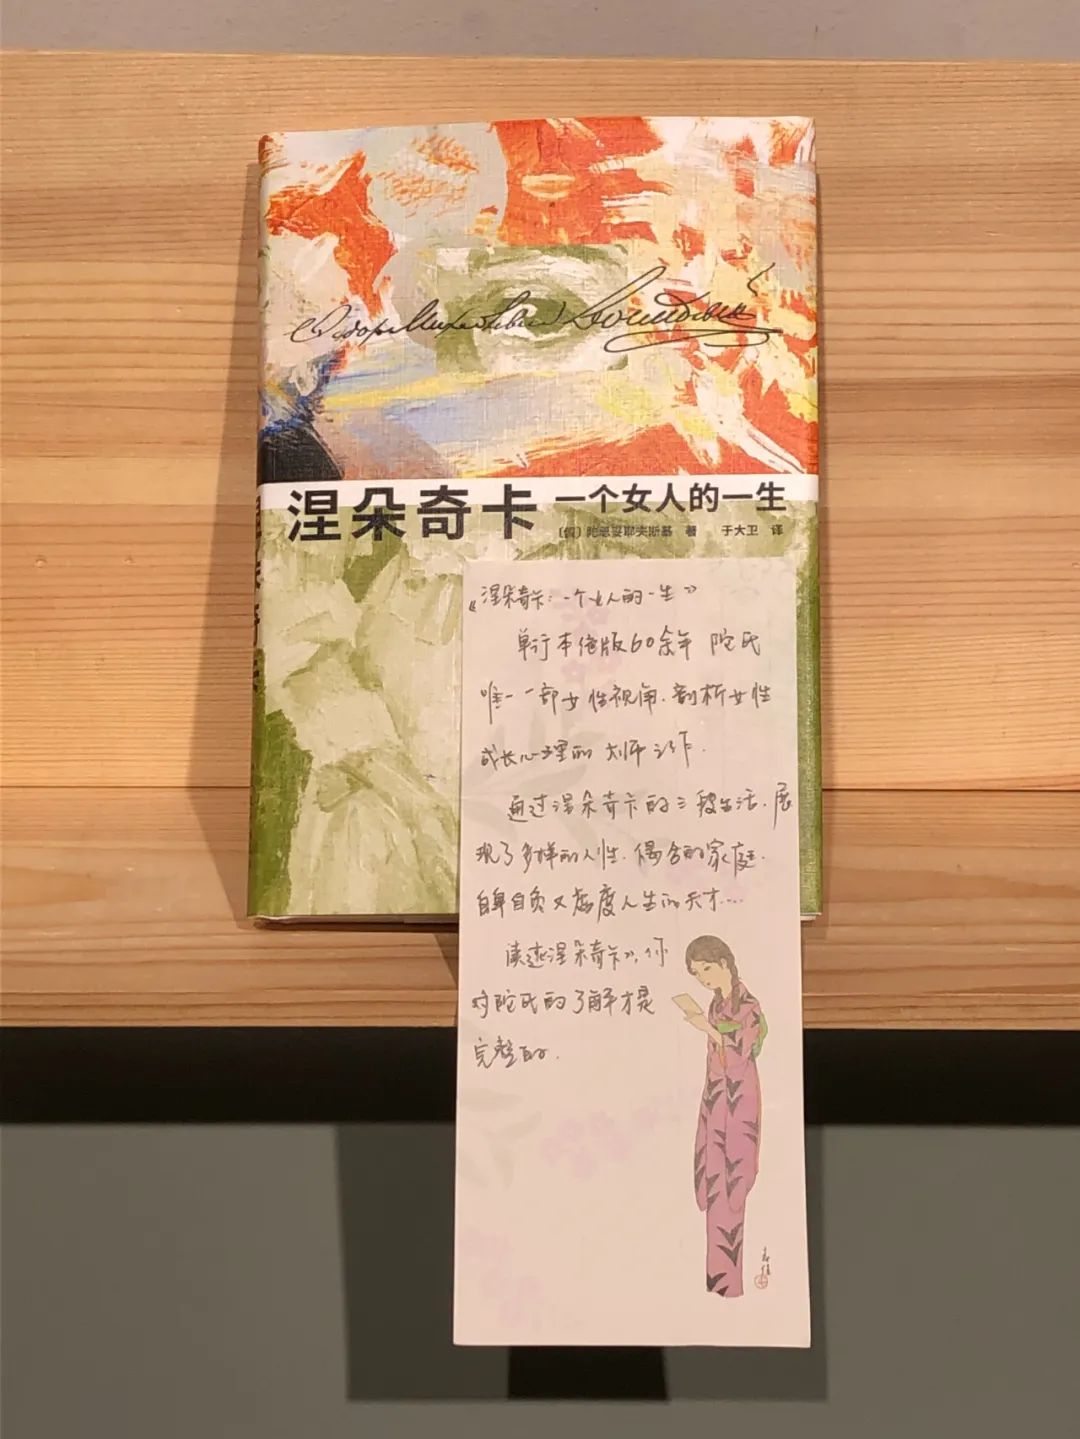 Ѳедоръ Михайловичъ Достоевскій
涅朵奇卡 一个女人的一生
〔俄〕陀思妥耶夫斯基 著 于大卫 译
《涅朵奇卡：一个女人的一生》
单行本绝版60余年 陀氏
唯一一部女性视角.剖析女性
成长心理的大师之作.
通过涅朵奇卡的三段生活.展
现了多样的人性.偶合的家庭.
自卑自负又虚度人生的天才....
读过《涅朵奇卡》,你
对陀氏的了解才是
完整的.